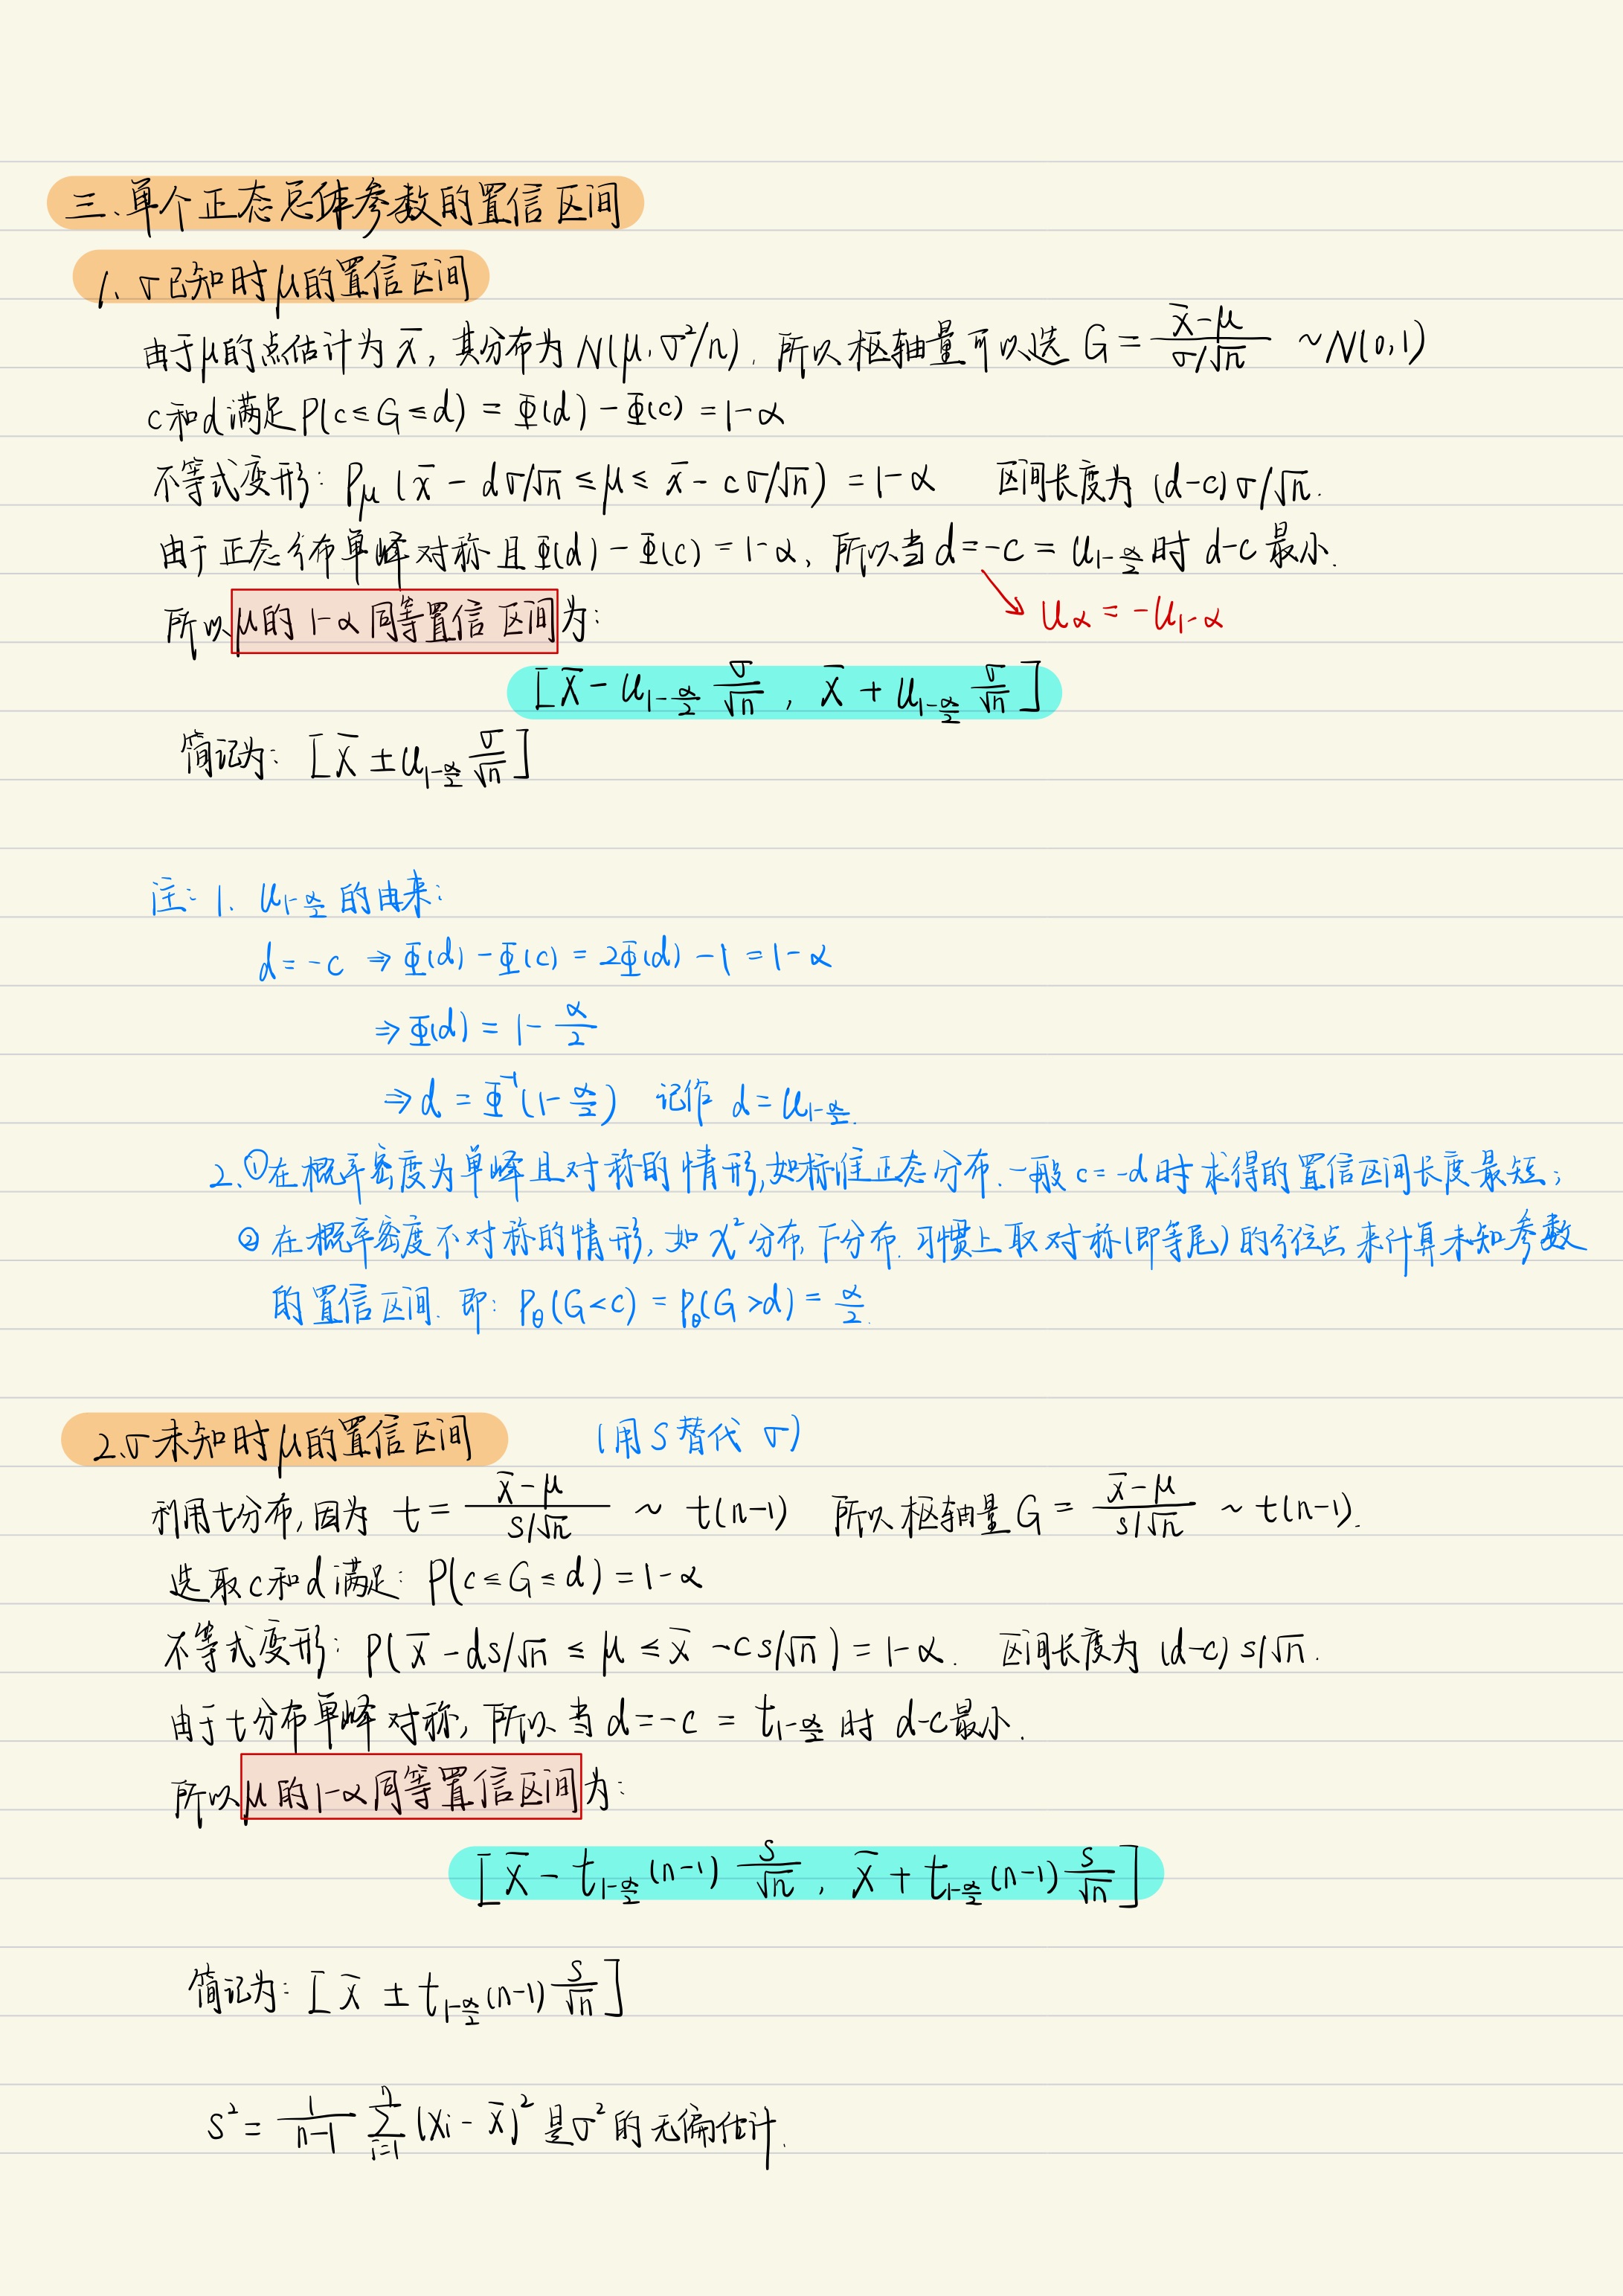 三、单个正态总体参数的置信区间
1、σ已知时μ的置信区间
由于μ的点估计为 x̄，其分布为 N(μ, σ²/n)，所以枢轴量可以选 G = (x̄-μ)/(σ/√n) ~ N(0,1)
c和d满足 P(c ≤ G ≤ d) = Φ(d) - Φ(c) = 1-α
不等式变形：Pμ (x̄ - dσ/√n ≤ μ ≤ x̄ - cσ/√n) = 1-α 区间长度为 (d-c)σ/√n.
由于正态分布单峰对称且Φ(d) - Φ(c) = 1-α，所以当 d = -c = u_{1-α/2} 时 d-c 最小.
→ uα = -u_{1-α}
所以μ的 1-α 同等置信区间为：
[x̄ - u_{1-α/2} σ/√n , x̄ + u_{1-α/2} σ/√n]
简记为： [x̄ ± u_{1-α/2} σ/√n]
注：1. u_{1-α/2} 的由来：
d = -c ⇒ Φ(d) - Φ(c) = 2Φ(d) - 1 = 1-α
⇒ Φ(d) = 1 - α/2
⇒ d = Φ⁻¹(1 - α/2) 记作 d = u_{1-α/2}.
2.①在概率密度为单峰且对称的情形,如标准正态分布.一般 c = -d 时求得的置信区间长度最短；
② 在概率密度不对称的情形, 如 χ² 分布, F分布. 习惯上取对称(即等尾)的分位点来计算未知参数
的置信区间. 即: Pθ(G < c) = Pθ(G > d) = α/2.
2、σ未知时μ的置信区间 (用 S 替代 σ)
利用t分布, 因为 t = (x̄-μ)/(s/√n) ~ t(n-1) 所以枢轴量 G = (x̄-μ)/(s/√n) ~ t(n-1).
选取c和d满足: P(c ≤ G ≤ d) = 1-α
不等式变形: P(x̄ - ds/√n ≤ μ ≤ x̄ - cs/√n) = 1-α. 区间长度为 (d-c) s/√n.
由于t分布单峰对称, 所以当 d = -c = t_{1-α/2} 时 d-c最小.
所以μ的1-α同等置信区间为:
[x̄ - t_{1-α/2}(n-1) s/√n , x̄ + t_{1-α/2}(n-1) s/√n]
简记为: [x̄ ± t_{1-α/2}(n-1) s/√n]
s² = 1/(n-1) Σ_{i=1}^{n} (xi - x̄)² 是σ²的无偏估计.